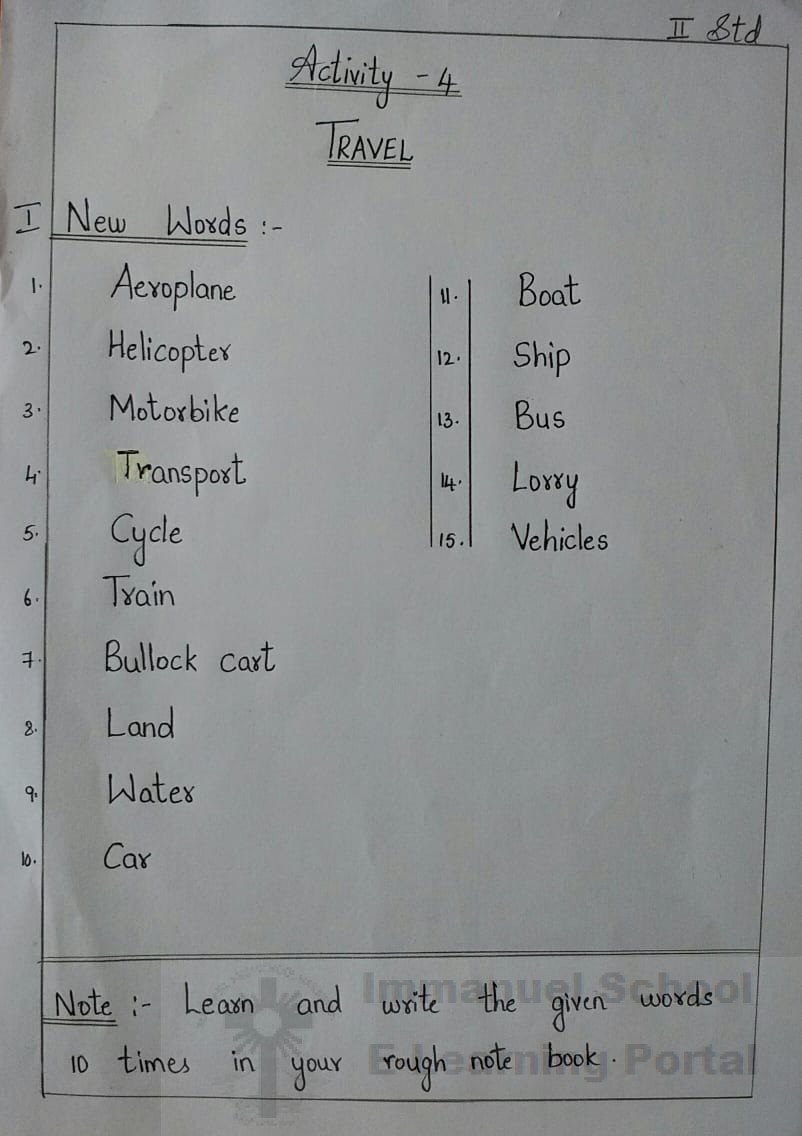 II Std
Activity - 4
TRAVEL
I New Words :-
1. Aeroplane
2. Helicopter
3. Motorbike
4. Transport
5. Cycle
6. Train
7. Bullock cart
8. Land
9. Water
10. Car
11. Boat
12. Ship
13. Bus
14. Lorry
15. Vehicles
Note :- Learn and write the given words
10 times in your rough note book.
Immanuel School
E-Learning Portal